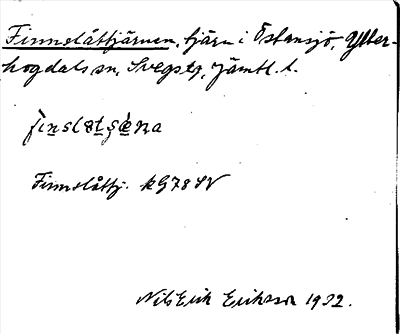 Finnslåttjärnen, tjärn i Östansjö, Ytter-
hogdals sn, Svegs tg, Jämtl. l.
Finnslåttj. kG78SV
Nils Erik Eriksson 1932.